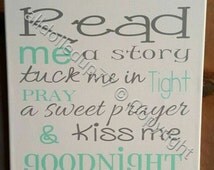 Read
me a story
tuck me in Tight
PRAY
a sweet prayer
& kiss me
GOODNIGHT